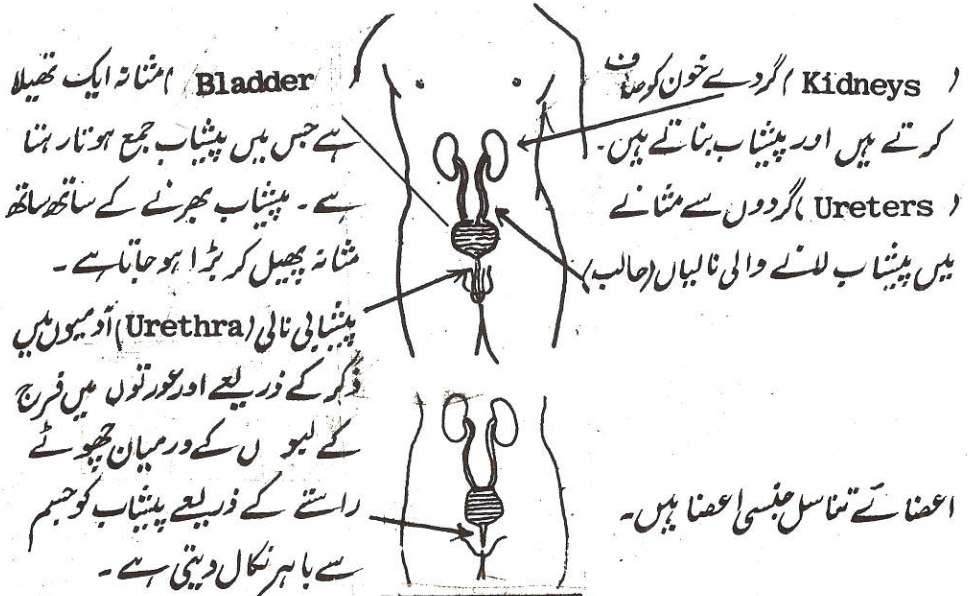 ( Kidneys ) گردے خون کو صاف
کرتے ہیں اور پیشاب بناتے ہیں۔
( Ureters ) گردوں سے مثانے
میں پیشاب للنے والی نالیاں (حالب)
اعضائے تناسل جنسی اعضا ہیں۔
( Bladder ) مثانہ ایک تھیلا
ہے جس میں پیشاب جمع ہوتا رہتا
ہے ۔ پیشاب بھرنے کے ساتھ ساتھ
مثانہ پھیل کر بڑا ہو جاتا ہے ۔
پیشابی نالی (Urethra) آدمیوں میں
ذکر کے ذریعے اور عورتوں میں فرج
کے لبو ں کے درمیان چھوٹے
راستے کے ذریعے پیشاب کو جسم
سے باہر نکال دیتی ہے ۔